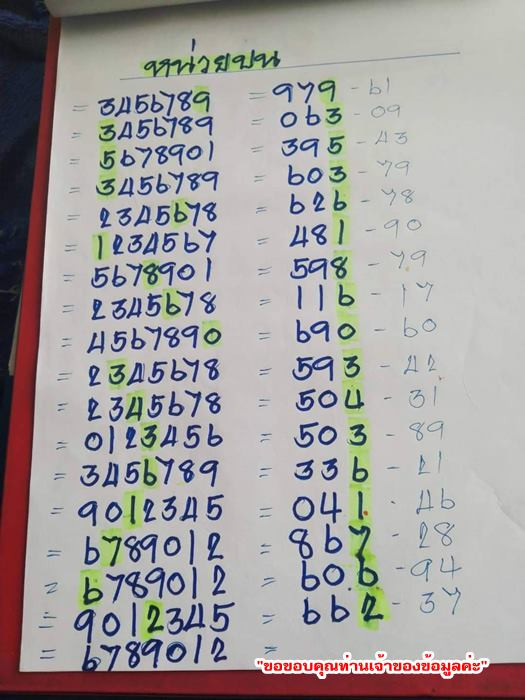 หน่วยบน
= 3456789 = 979 - 61
= 3456789 = 063 - 09
= 5678901 = 395 - 43
= 3456789 = 603 - 79
= 2345678 = 626 - 78
= 1234567 = 481 - 90
= 5678901 = 598 - 79
= 2345678 = 116 - 17
= 4567890 = 690 - 60
= 2345678 = 593 - 42
= 2345678 = 504 - 31
= 0123456 = 503 - 89
= 3456789 = 336 - 21
= 9012345 = 041 - 46
= 6789012 = 867 - 28
= 6789012 = 606 - 94
= 9012345 = 662 - 37
= 6789012 =
"ขอขอบคุณท่านเจ้าของข้อมูลค่ะ"